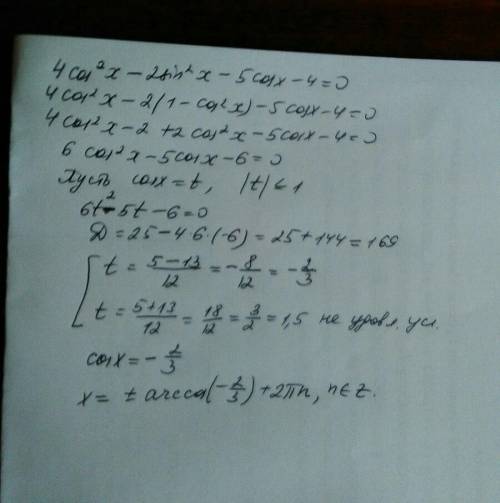 4cos²x − 2sin²x − 5cosx − 4 = 0
4cos²x − 2(1 − cos²x) − 5cosx − 4 = 0
4cos²x − 2 + 2cos²x − 5cosx − 4 = 0
6cos²x − 5cosx − 6 = 0
Пусть cosx = t, |t| ≤ 1
6t² − 5t − 6 = 0
D = 25 − 4·6·(−6) = 25 + 144 = 169
[ t = (5−13)/12 = −8/12 = −2/3
t = (5+13)/12 = 18/12 = 3/2 = 1,5 не удовл. усл.
cosx = −2/3
x = ± arccos(−2/3) + 2πn, n∈Z.